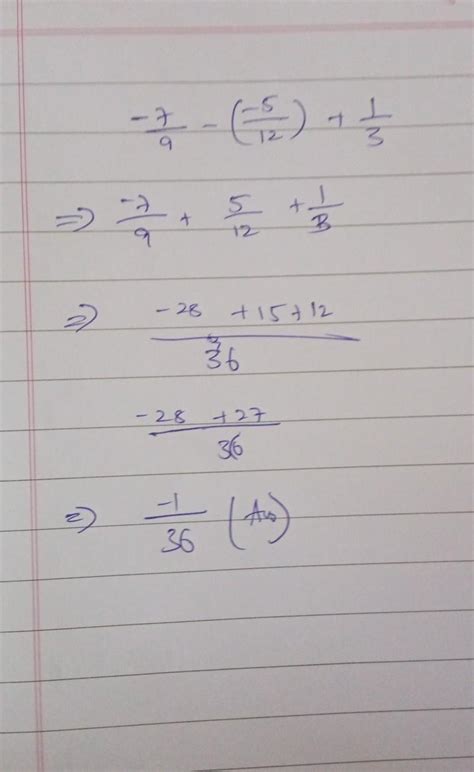 -7/9 - (-5/12) + 1/3
⇒ -7/9 + 5/12 + 1/3
⇒ -28 +15+12 / 36
-28 +27 / 36
⇒ -1/36 (Ans)